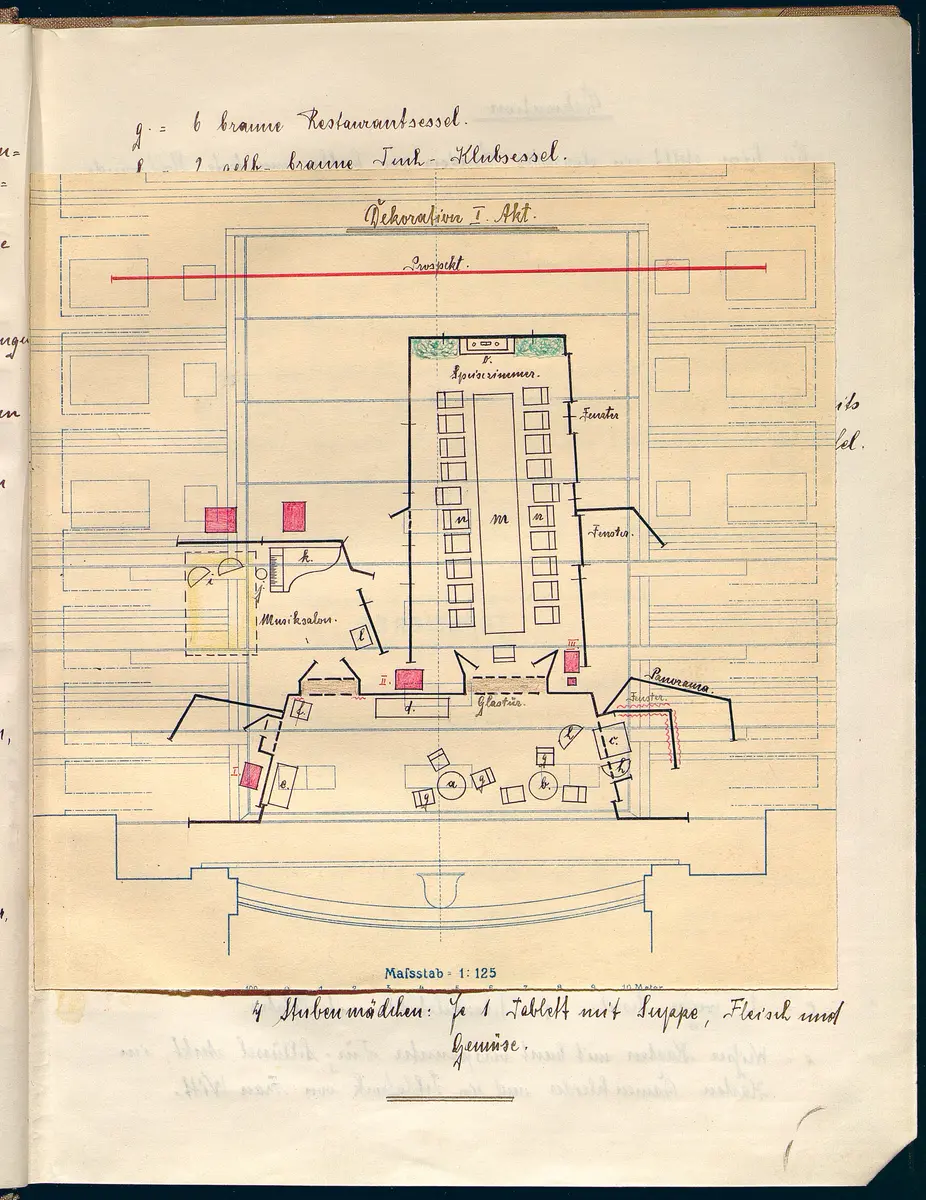 g. = 6 braune Restaurantsessel.
braune Tuch-Klubsessel.
Dekoration I. Akt.
Prospekt.
o.
Speisezimmer.
Fenster
n
m
n
Fenster.
k.
i
j.
Musiksalon.
l
III
II.
Panorama.
Fenster.
d.
Glastür.
f.
l
c.
h
I
e.
g
a
g
g
b.
Maßstab = 1:125
10 Meter
4 Stubenmädchen: Je 1 Tablett mit Suppe, Fleisch und
Gemüse.